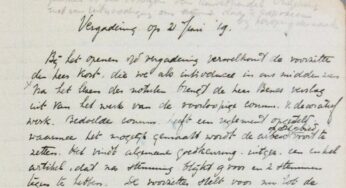 Vergadering op 2 Juni '19.
Bij het openen der vergadering verwelkomt de voorzitter
den heer Kort, die we als introducé in ons midden zien
Na het lezen der notulen brengt de heer verslag
uit van het werk van de voorloopige comm. v. decoratief
werk. Bedoelde comm. heeft een reglement opgesteld
waarmee het mogelijk gemaakt wordt de arbeid voort te
zetten. Het vindt algemeene goedkeuring. uitgez. een enkel
artikel, dat na stemming blijkt 9 voor en 2 stemmen
tegen te hebben. De voorzitter stelt voor nu tot de